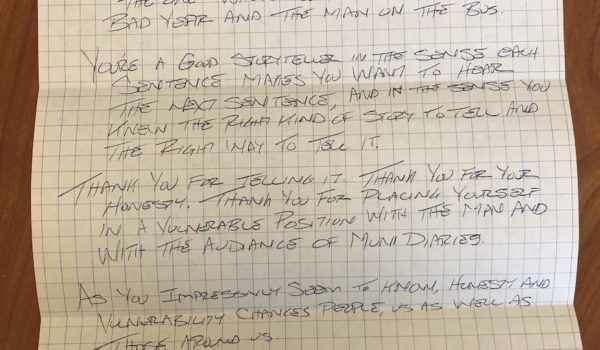 THE ONE
BAD YEAR AND THE MAN ON THE BUS.
YOU'RE A GOOD STORYTELLER IN THE SENSE EACH
SENTENCE MAKES YOU WANT TO HEAR
THE NEXT SENTENCE, AND IN THE SENSE YOU
KNEW THE RIGHT KIND OF STORY TO TELL AND
THE RIGHT WAY TO TELL IT.
THANK YOU FOR TELLING IT. THANK YOU FOR YOUR
HONESTY. THANK YOU FOR PLACING YOURSELF
IN A VULNERABLE POSITION WITH THE MAN AND
WITH THE AUDIANCE OF MUNI DIARIES.
AS YOU IMPRESSIVLY SEEM TO KNOW, HONESTY AND
VULNERABILITY CHANGES PEOPLE, US AS WELL AS
THOSE AROUND US.